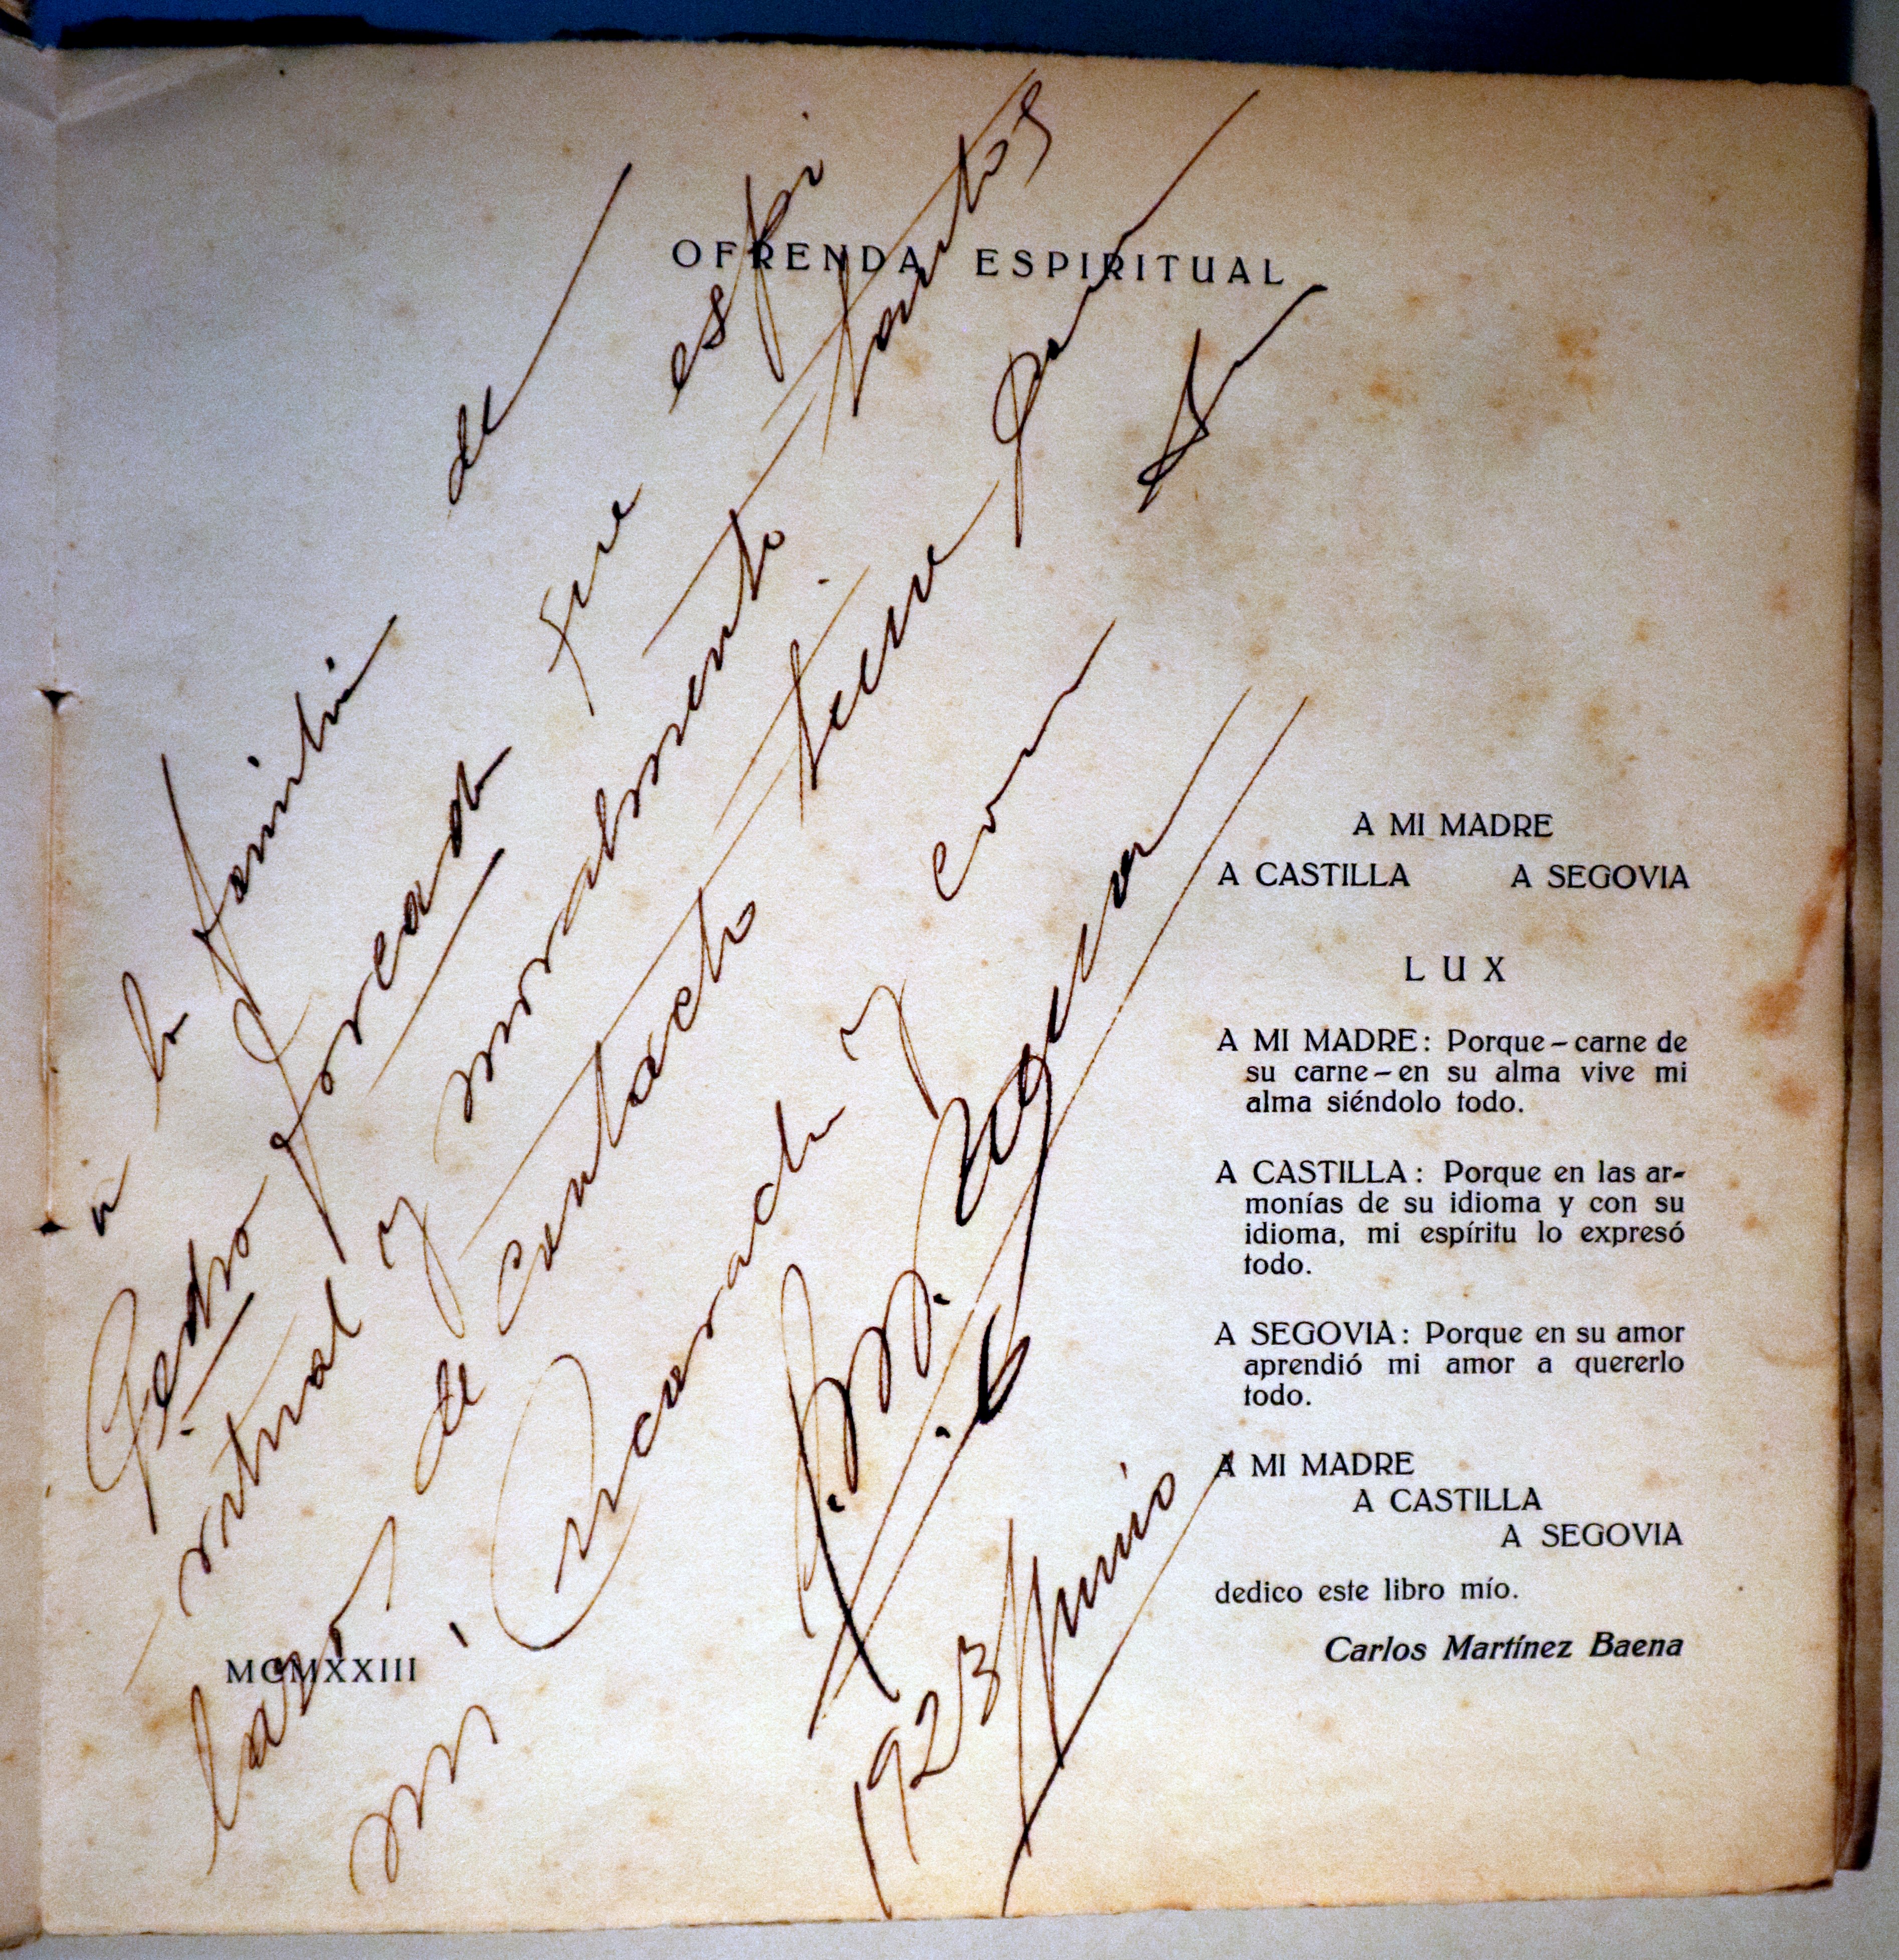 OFRENDA ESPIRITUAL
A MI MADRE
A CASTILLA A SEGOVIA
LUX
A MI MADRE: Porque – carne de
su carne – en su alma vive mi
alma siéndolo todo.
A CASTILLA: Porque en las ar-
monías de su idioma y con su
idioma, mi espíritu lo expresó
todo.
A SEGOVIA: Porque en su amor
aprendió mi amor a quererlo
todo.
A MI MADRE
A CASTILLA
A SEGOVIA
dedico este libro mío.
Carlos Martínez Baena
MCMXXIII
a la familia de
Pedro Forcada que espi
ritual y moralmente tantos
lazos de contacto tiene para
mi y con
1923 Junio